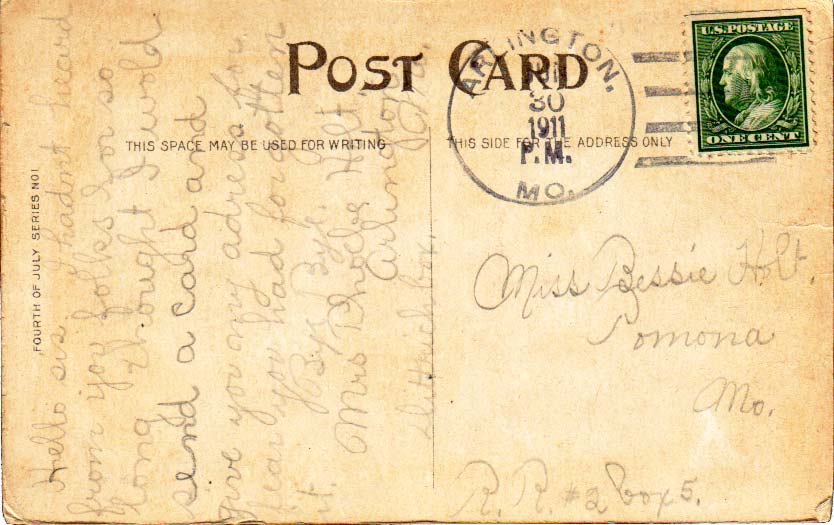 POST CARD
THIS SPACE MAY BE USED FOR WRITING
THIS SIDE FOR THE ADDRESS ONLY
FOURTH OF JULY SERIES NO1
Hello sis hadnt heard
from you folks for so
long thought I wold
send a card and
give you my adress for
fear you had forgotten
it. Bye Bye.
Mrs Phoebe Holt
Arlington
Mo.
box.
ARLINGTON,
30
1911
P.M.
MO.
U.S. POSTAGE
ONE CENT
Miss Bessie Holt.
Pomona
Mo.
R. R. #2 box 5.